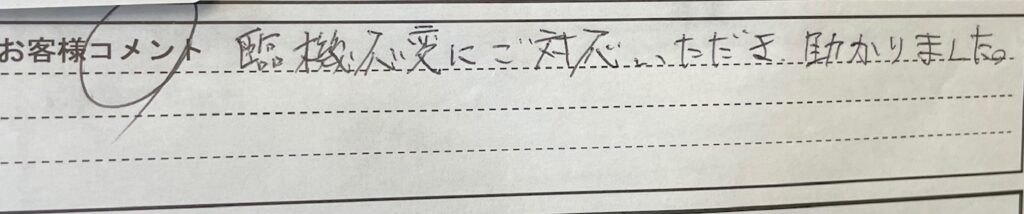 お客様コメント 臨機応変にご対応いただき助かりました。